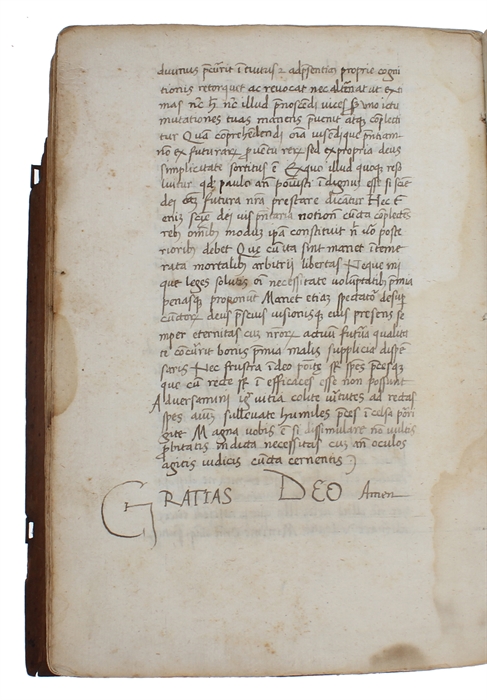 divinus precurrit intuitus et ad presentiam proprie cogni
tionis retorquet ac revocat nec alternat ut exti
mas nunc hoc nunc illud prenoscendi vices sed uno ictu
mutationes tuas manens prevenit atque complecti
tur Quam comprehendendi omnia visendique presentiam
non ex futurarum proventu rerum sed ex propria deus
simplicitate sortitus est Ex quo illud quoque resol
vitur quod paulo ante posuisti indignum esse si scientie
dei causam futura nostra prestare dicatur Hec
enim scientie dei vis presentaria notione cuncta complectens
rebus omnibus modum ipsa constituit nihil vero poste
rioribus debet Que cum ita sint manet inteme
rata mortalibus arbitrii libertas Neque ini
que leges solutis omni necessitate voluptatibus premia
penasque proponunt Manet etiam spectator desuper
cunctorum deus prescius visionisque eius presens se
mper eternitas cum nostrorum actuum futura qualita
te concurrit bonis premia malis supplicia dispen
sans Nec frustra in deo posite sunt spes precesque
que cum recte sunt inefficaces esse non possunt
Adversamini igitur vitia colite virtutes ad rectas
spes animum sullevate humiles preces in celsa porri
gite Magna vobis est si dissimulare non vultis
probitatis indicta necessitas cum ante oculos
agitis iudicis cuncta cernentis :)
GRATIAS DEO Amen